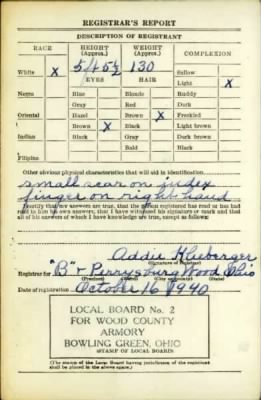 REGISTRAR'S REPORT
DESCRIPTION OF REGISTRANT
RACE HEIGHT (Approx.) WEIGHT (Approx.) COMPLEXION
White X 5/4 5½ 130 Sallow
EYES HAIR Light X
Negro Blue Blonde Ruddy
Gray Red Dark
Oriental Hazel Brown X Freckled
Brown X Black Light brown
Indian Black Gray Dark brown
Bald Black
Filipino
Other obvious physical characteristics that will aid in identification
small scar on index
finger on right hand
I certify that my answers are true, that the person registered has read or has had
read to him his own answers, that I have witnessed his signature or mark and that
all of his answers of which I have knowledge are true, except as follows:
Addie
(Signature of registrar)
Registrar for "B" Perrysburg Wood Ohio
(Precinct) (State)
Date of registration October 16 1940
LOCAL BOARD No. 2
FOR WOOD COUNTY
ARMORY
BOWLING GREEN, OHIO
(STAMP OF LOCAL BOARD)
(The stamp of the Local Board having jurisdiction of the registrant
shall be placed in the above space.)